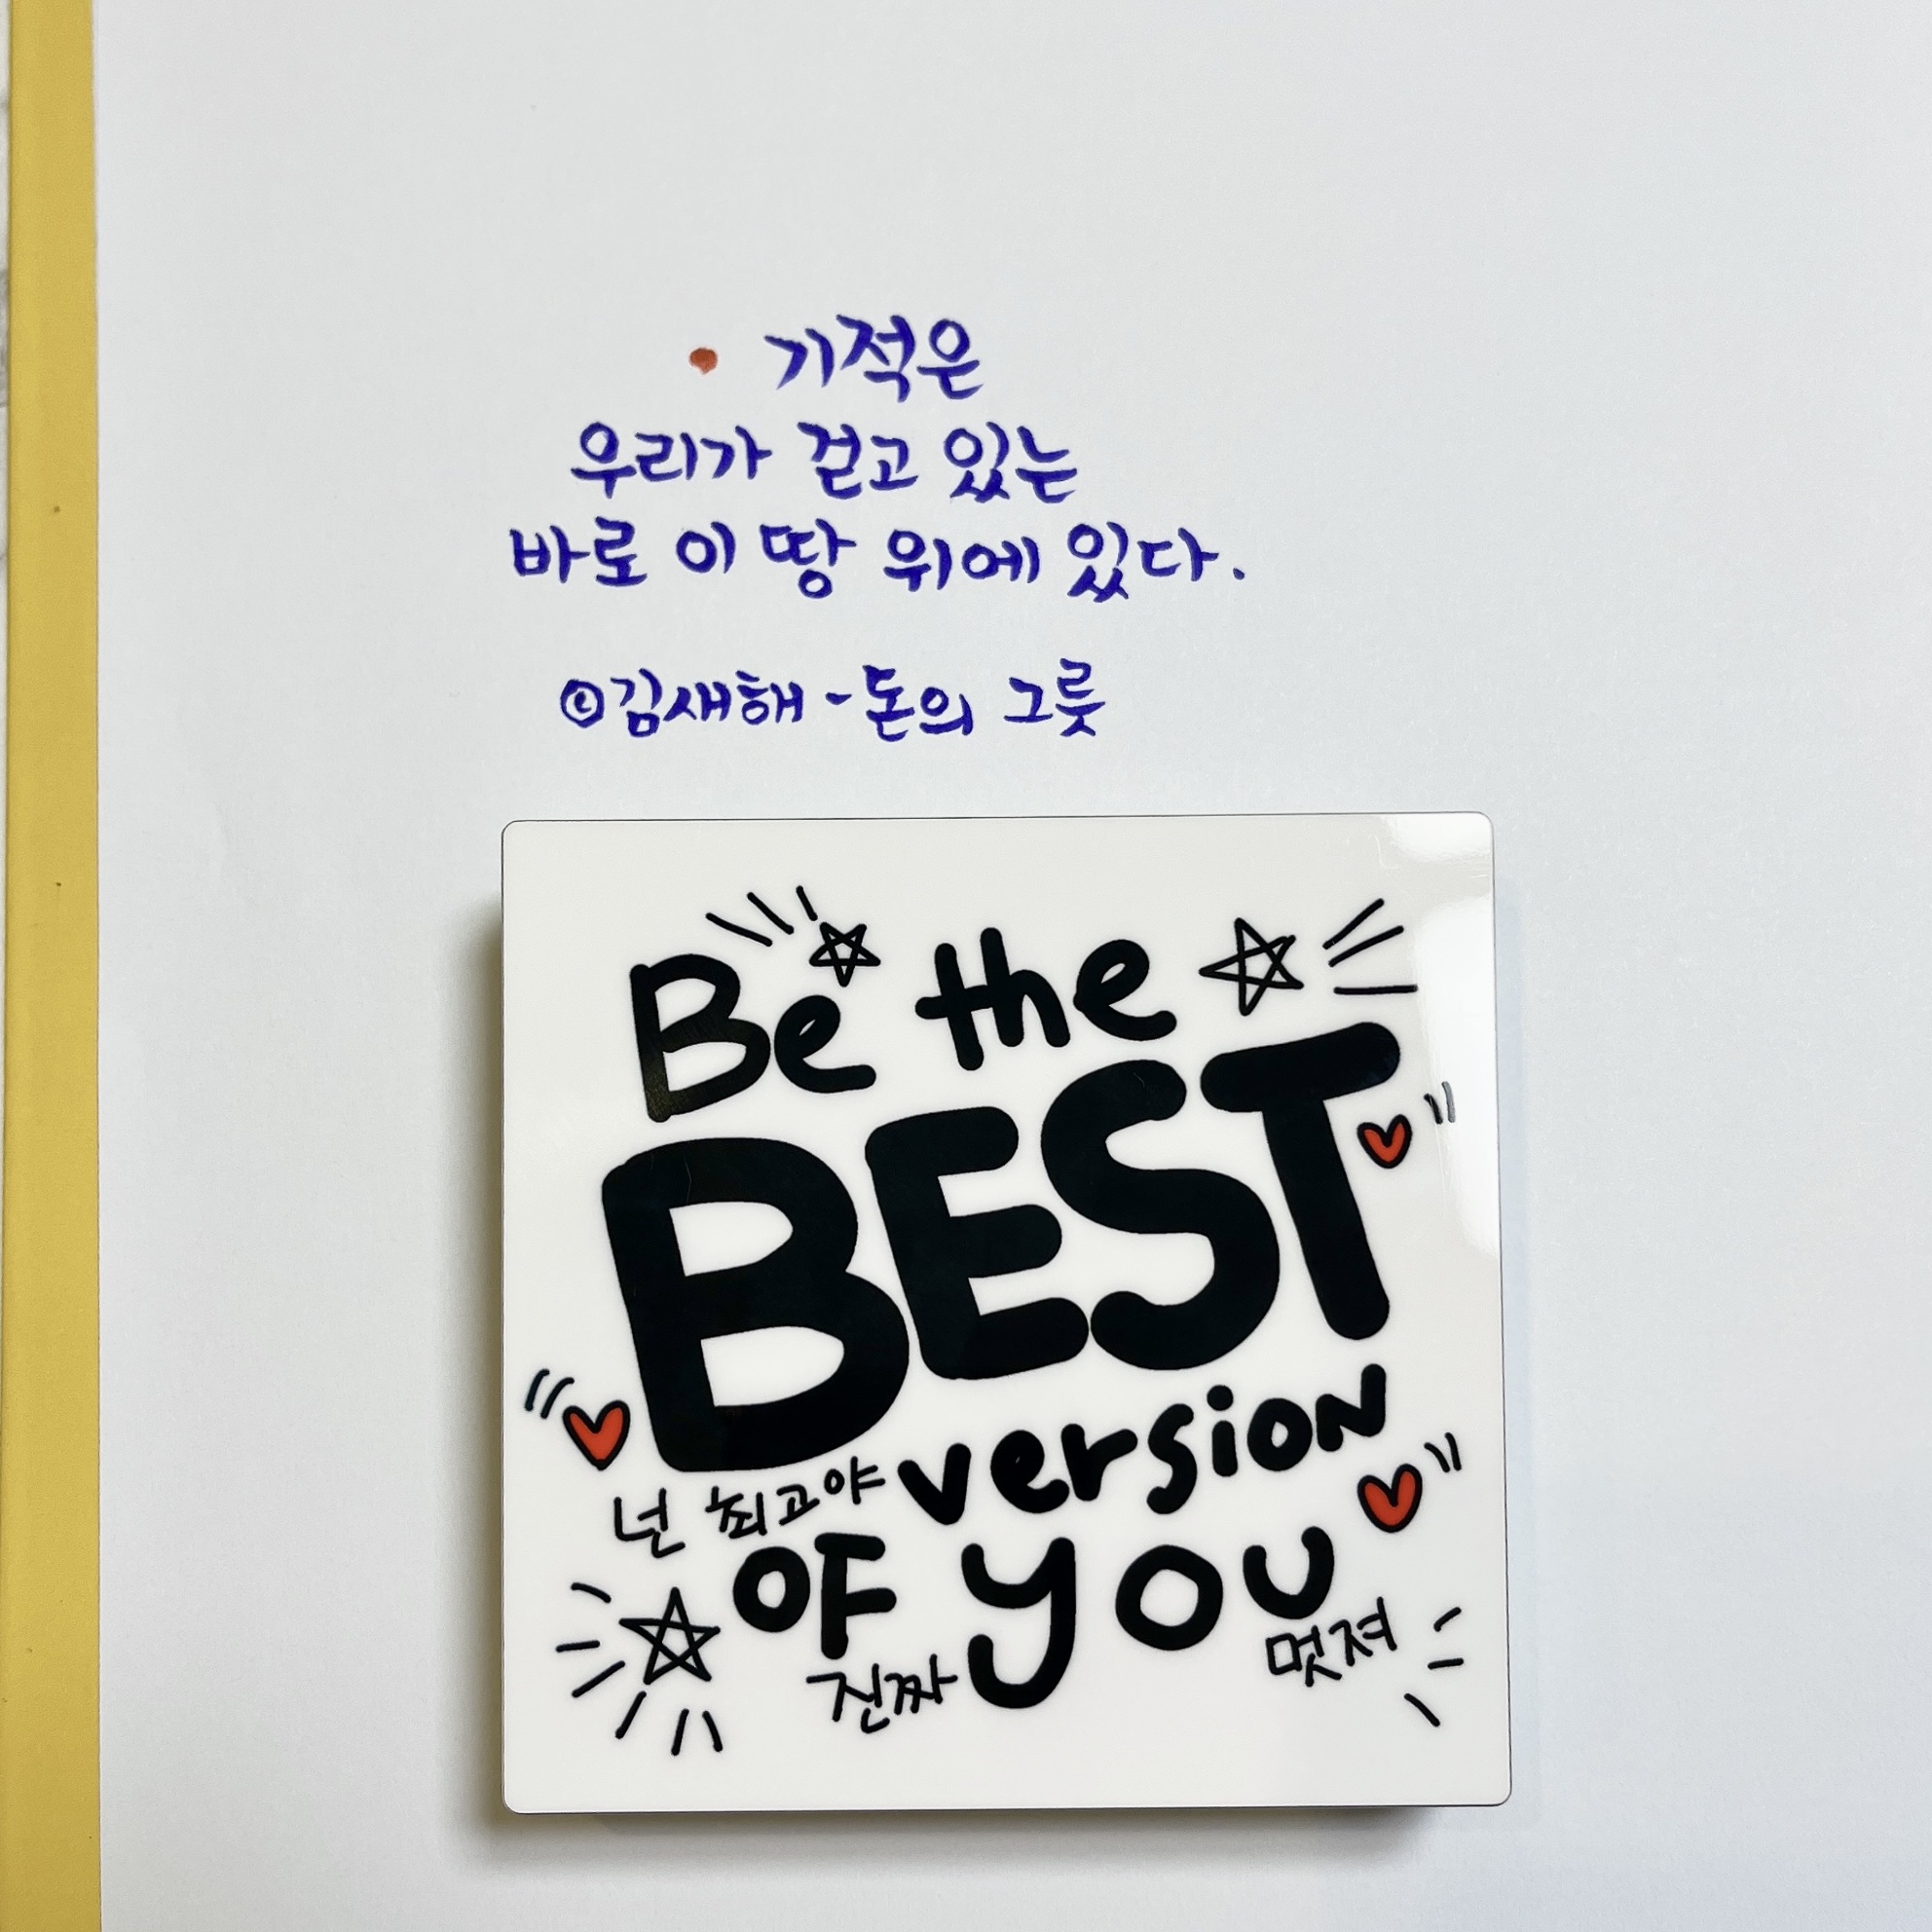 • 기적은
우리가 걷고 있는
바로 이 땅 위에 있다.
©김새해 - 돈의 그릇
Be the
BEST
version
넌 최고야
of you
진짜
멋져